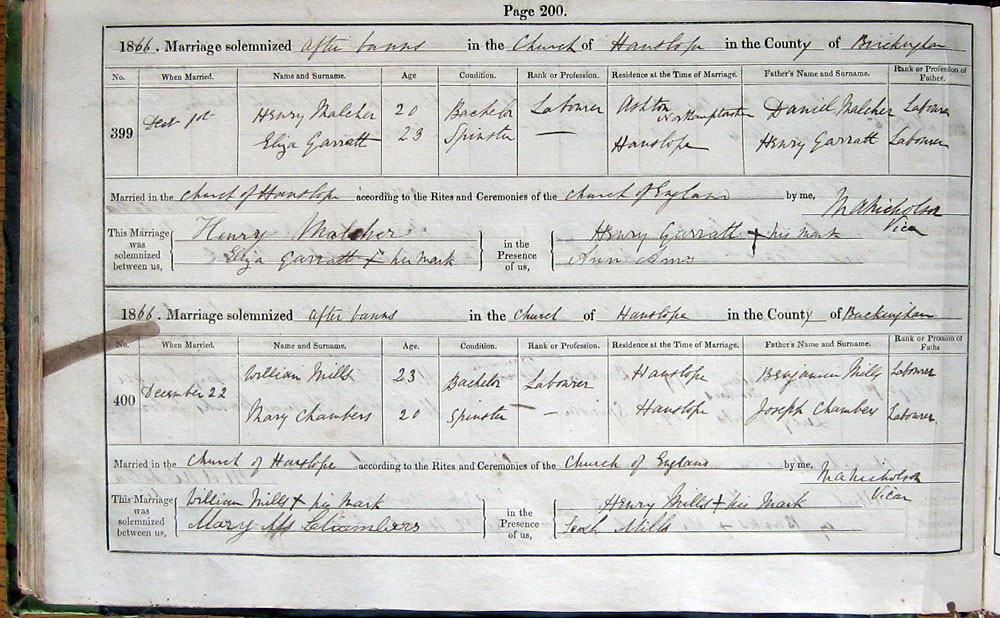 Page 200.
1866. Marriage solemnized after banns in the Church of Hanslope in the County of Buckingham
No. When Married. Name and Surname. Age Condition. Rank or Profession. Residence at the Time of Marriage. Father's Name and Surname. Rank or Profession of Father.
399 1st Henry Malcher 20 Bachelor Labourer Ashton Northamptonshire Daniel Malcher Labourer
Eliza Garratt 23 Spinster — Hanslope Henry Garratt Labourer
Married in the Church of Hanslope according to the Rites and Ceremonies of the Church of England by me, Nicholson
Vicar
This Marriage was solemnized between us, Henry Malcher in the Presence of us, Henry Garratt + his mark
Eliza Garratt + her mark Ann
1866. Marriage solemnized after banns in the Church of Hanslope in the County of Buckingham
No. When Married. Name and Surname. Age. Condition. Rank or Profession. Residence at the Time of Marriage. Father's Name and Surname. Rank or
400 December 22 William Mills 23 Bachelor Labourer Hanslope Benjamin Mills Labourer
Mary Chambers 20 Spinster — Hanslope Joseph Chambers Labourer
Married in the Church of Hanslope according to the Rites and Ceremonies of the Church of England by me, Nicholson
Vicar
This Marriage was solemnized between us, William Mills + his mark in the Presence of us, Henry Mills + his mark
Mary Chambers Mills